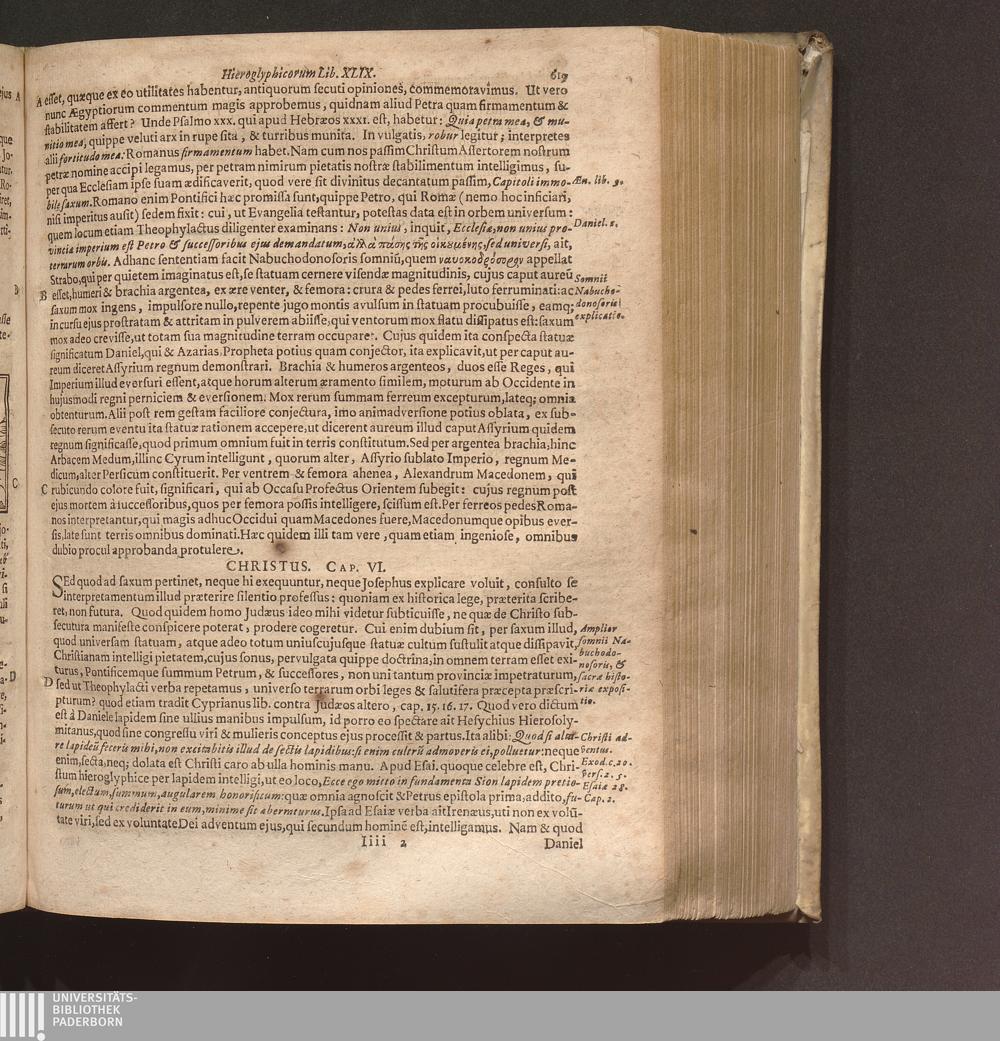 Hieroglyphicorum Lib. XLIX. 619
A esset, quæque ex eo utilitates habentur, antiquorum secuti opiniones, commemoravimus. Ut vero
nunc Ægyptiorum commentum magis approbemus, quidnam aliud Petra quam firmamentum &
stabilitatem affert? Unde Psalmo xxx. qui apud Hebræos xxxi. est, habetur: Quia petra mea, & mu-
nitio mea, quippe veluti arx in rupe sita, & turribus munita. In vulgatis, robur legitur; interpretes
alii fortitudo mea: Romanus firmamentum habet. Nam cum nos passim Christum Assertorem nostrum
petræ nomine accipi legamus, per petram nimirum pietatis nostræ stabilimentum intelligimus, su-
per qua Ecclesiam ipse suam ædificaverit, quod vere sit divinitus decantatum passim, Capitoli immo- Æn. lib. 9.
bile saxum. Romano enim Pontifici hæc promissa sunt, quippe Petro, qui Romæ (nemo hoc inficiari,
nisi imperitus ausit) sedem fixit: cui, ut Evangelia testantur, potestas data est in orbem universum:
quem locum etiam Theophylactus diligenter examinans: Non unius, inquit, Ecclesiæ, non unius pro- Daniel. 2.
vinciæ imperium est Petro & successoribus ejus demandatum, ἀλλὰ πάσης τῆς οἰκουμένης, sed universi, ait,
terrarum orbis. Adhanc sententiam facit Nabuchodonosoris somniũ, quem ναυοκοδρόσορον appellat
Strabo, qui per quietem imaginatus est, se statuam cernere visendæ magnitudinis, cujus caput aureũ Somnii
B esset, humeri & brachia argentea, ex ære venter, & femora: crura & pedes ferrei, luto ferruminati: ac Nabucho-
saxum mox ingens, impulsore nullo, repente jugo montis avulsum in statuam procubuisse, eamq; donosoris
in cursu ejus prostratam & attritam in pulverem abiisse, qui ventorum mox flatu dissipatus est: saxum explicatio.
mox adeo crevisse, ut totam sua magnitudine terram occuparet. Cujus quidem ita conspecta statuæ
significatum Daniel, qui & Azarias, Propheta potius quam conjector, ita explicavit, ut per caput au-
reum diceret Assyrium regnum demonstrari. Brachia & humeros argenteos, duos esse Reges, qui
Imperium illud eversuri essent, atque horum alterum æramento similem, moturum ab Occidente in
hujusmodi regni perniciem & eversionem. Mox rerum summam ferreum excepturum, lateq; omnia
obtenturum. Alii post rem gestam faciliore conjectura, imo animadversione potius oblata, ex sub-
secuto rerum eventu ita statuæ rationem accepere, ut dicerent aureum illud caput Assyrium quidem
regnum significasse, quod primum omnium fuit in terris constitutum. Sed per argentea brachia, hinc
Arbacem Medum, illinc Cyrum intelligunt, quorum alter, Assyrio sublato Imperio, regnum Me-
dicum, alter Persicum constituerit. Per ventrem & femora ahenea, Alexandrum Macedonem, qui
C rubicundo colore fuit, significari, qui ab Occasu Profectus Orientem subegit: cujus regnum post
ejus mortem à successoribus, quos per femora possis intelligere, scissum est. Per ferreos pedes Roma-
nos interpretantur, qui magis adhuc Occidui quam Macedones fuere, Macedonumque opibus ever-
sis, late sunt terris omnibus dominati. Hæc quidem illi tam vere, quam etiam ingeniose, omnibus
dubio procul approbanda protulere.
CHRISTUS. CAP. VI.
SEd quod ad saxum pertinet, neque hi exequuntur, neque Josephus explicare voluit, consulto se
interpretamentum illud præterire silentio professus: quoniam ex historica lege, præterita scribe-
ret, non futura. Quod quidem homo Judæus ideo mihi videtur subticuisse, ne quæ de Christo sub-
secutura manifeste conspicere poterat, prodere cogeretur. Cui enim dubium sit, per saxum illud, Amplior
quod universam statuam, atque adeo totum uniuscujusque statuæ cultum sustulit atque dissipavit, somnii Na-
Christianam intelligi pietatem, cujus sonus, pervulgata quippe doctrina, in omnem terram esset exi- buchodo-
turus, Pontificemque summum Petrum, & successores, non uni tantum provinciæ impetraturum, nosoris, &
D sed ut Theophylacti verba repetamus, universo terrarum orbi leges & salutifera præcepta præscri- sacræ histo-
pturum? quod etiam tradit Cyprianus lib. contra Judæos altero, cap. 15. 16. 17. Quod vero dictum riæ exposi-
est à Daniele lapidem sine ullius manibus impulsum, id porro eo spectare ait Hesychius Hierosoly- tio.
mitanus, quod sine congressu viri & mulieris conceptus ejus processit & partus. Ita alibi: Quod si alta- Christi ad-
re lapideũ feceris mihi, non excitabitis illud de sectis lapidibus: si enim cultrũ admoveris ei, polluetur: neque ventus.
enim, secta, neq; dolata est Christi caro ab ulla hominis manu. Apud Esai. quoque celebre est, Chri- Exod. c. 20.
stum hieroglyphice per lapidem intelligi, ut eo loco, Ecce ego mitto in fundamenta Sion lapidem pretio- vers. 2. 5.
sum, electum, summum, angularem honorificum: quæ omnia agnoscit & Petrus epistola prima, addito, fu- Esaiæ 28.
turum ut qui crediderit in eum, minime sit aberraturus. Ipsa ad Esaiæ verba ait Irenæus, uti non ex volũ- Cap. 2.
tate viri, sed ex voluntate Dei adventum ejus, qui secundum hominẽ est, intelligamus. Nam & quod
Iiii 2 Daniel
UNIVERSITÄTS-
BIBLIOTHEK
PADERBORN